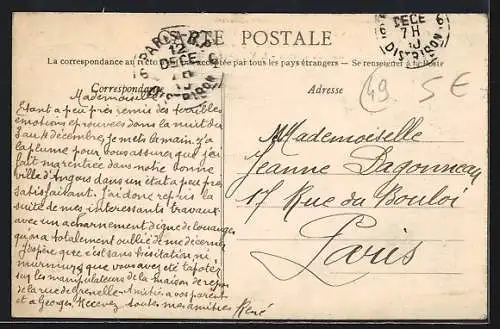 CARTE POSTALE
La correspondance au recto n'est pas acceptée par tous les pays étrangers — Se renseigner à la Poste
Correspondance
Adresse
PARIS
DECE
7 H
10
DISTRIBON
DECE
10
49
5€
Mademoiselle
Etant a peu près remis des terribles
emotions éprouvées dans la nuit du
3 au 4 décembre, je mets la main à
la plume pour vous assurer que j'ai
fait ma rentrée dans notre bonne
ville d'Angers dans un état a peu près
satisfaisant. J'ai donc repris la
suite de mes interessants travaux
avec un acharnement digne de louanges
qu'on a totalement oublié de me décerner
J'espère que c'est sans hésitation, ni
murmures que vous avez été tapoter
sur les manipulateurs de la maison de repos
de la rue de Grenelle. Amitiés a vos parents
et a Georges. Recevez toutes mes amitiés
René
Mademoiselle
Jeanne Dagonneau
17 Rue du Bouloi
Paris